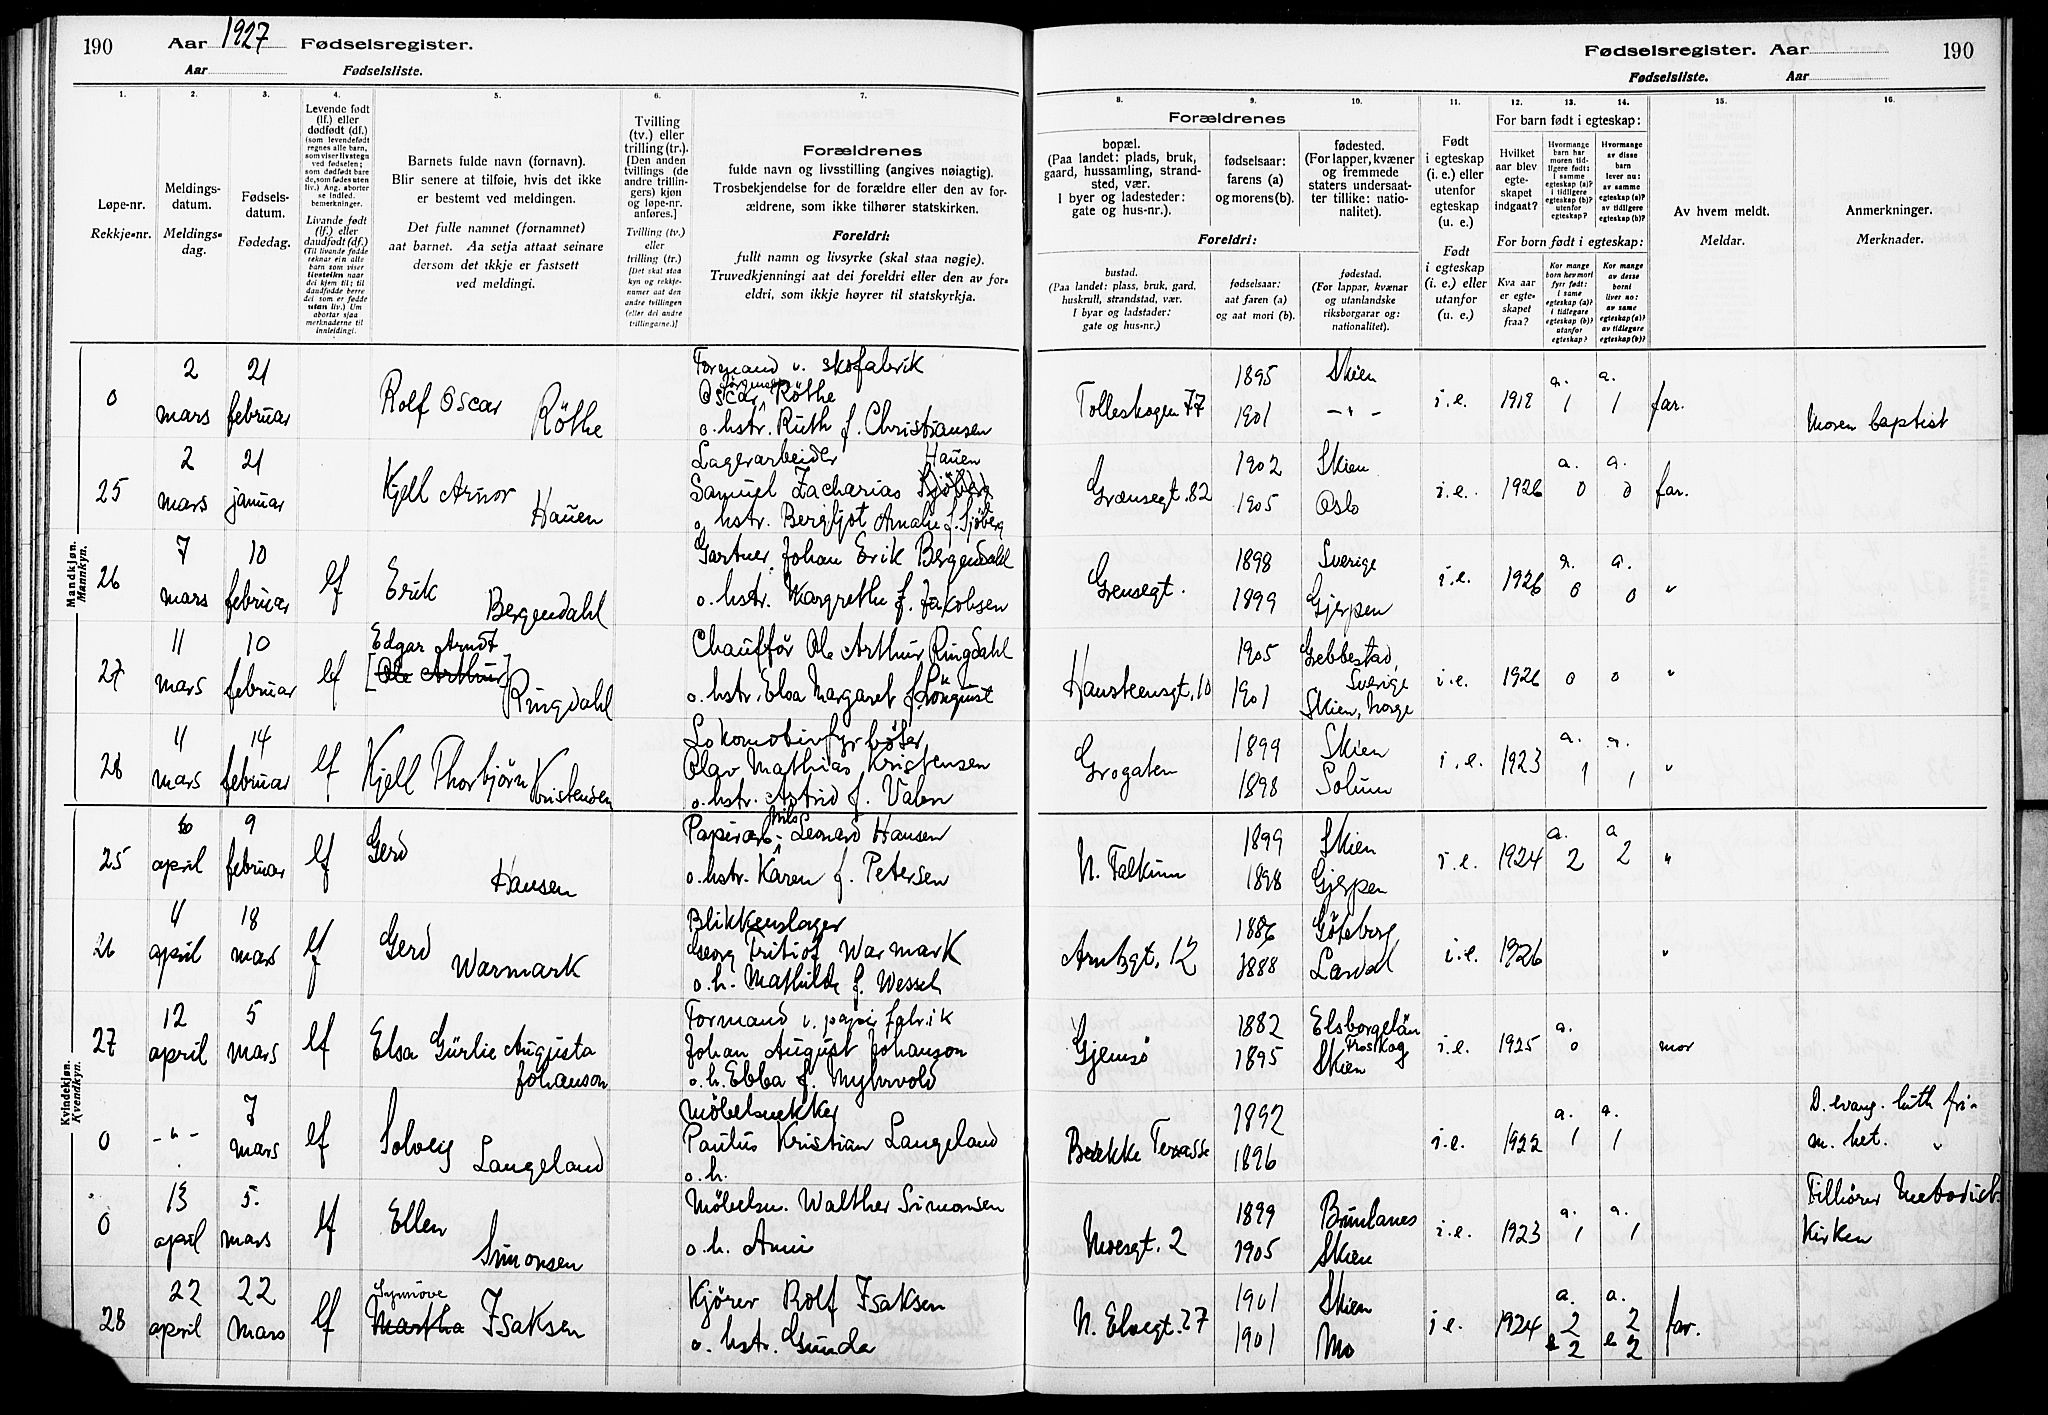 190 Aar 1927 Fødselsregister.
Aar Fødselsliste.
Fødselsregister. Aar 190
Fødselsliste. Aar
1. 2. 3. 4. 5. 6. 7.
Løpe-nr.
Rekkje-nr.
Meldings-
datum.
Meldings-
dag.
Fødsels-
datum.
Fødedag.
Levende født
(lf.) eller
dødfødt (df.)
(som levendefødt
regnes alle barn,
som viser livstegn
ved fødselen;
som dødfødt bare
de, som fødes uten
liv.) Ang. aborter
se indled.
bemerkninger.
Livande født
(lf.) eller
daudfødt (df.)
(Til livande fødde
reknar ein alle
barn som viser
livsteikn naar
dei kjem til; til
daudfødde berre
dei som er fødde
utan liv.) Um
abortar sjaa
merknaderne til
innleidingi.
Barnets fulde navn (fornavn).
Blir senere at tilføie, hvis det ikke
er bestemt ved meldingen.
Det fulle namnet (fornamnet)
aat barnet. Aa setja attaat seinare
dersom det ikkje er fastsett
ved meldingi.
Tvilling
(tv.) eller
trilling (tr.).
[Den anden
tvillings (de
andre trillin-
gers) kjøn
og løpe-nr.
anføres.]
Tvilling (tv.)
eller
trilling (tr.)
[Det skal staa
kyn og rekkje-
numer aat den
andre tvillingen
(eller dei andre
trillingarne.)]
Forældrenes
fulde navn og livsstilling (angives nøiagtig).
Trosbekjendelse for de forældre eller den av for-
ældrene, som ikke tilhører statskirken.
Foreldri:
fullt namn og livsyrke (skal staa nøgje).
Truvedkjenningi aat dei foreldri eller den av for-
eldri, som ikkje høyrer til statskyrkja.
8. 9. 10. 11. 12. 13. 14. 15. 16.
Forældrenes
bopæl.
(Paa landet: plads, bruk,
gaard, hussamling, strand-
sted, vær.
I byer og ladesteder:
gate og hus-nr.).
fødselsaar:
farens (a)
og morens (b).
fødested.
(For lapper, kvæner
og fremmede
staters undersaat-
ter tillike: natio-
nalitet).
Foreldri:
bustad.
(Paa landet: plass, bruk, gard,
huskrull, strandstad, vær.
I byar og ladstader:
gate og hus-nr.)
fødselsaar:
aat faren (a)
og aat mori (b).
fødestad.
(For lappar, kvænar
og utanlandske
riksborgarar og:
nationalitet).
Født
i egteskap
(i. e.) eller
utenfor
egteskap
(u. e.)
Født
i egteskap
(i. e.) eller
utanfor
(u. e.)
For barn født i egteskap:
Hvilket
aar blev
egte-
skapet
indgaat?
Hvormange
barn har
moren tid-
ligere født:
i samme
egteskap (a)?
i tidligere
egteskap (b)?
utenfor
egteskap?
Hvormange
av disse
barn
lever nu:
av samme
egteskap (a)?
av tidligere
egteskap (b)?
For born født i egteskap:
Kva aar
er egte-
skapet
fraa?
Kor mange
born hev mori
fyrr født:
i same
egteskap (a)?
i tidlegare
egteskap (b)?
utanfor
egteskap?
Kor mange
av disse
borni
liver no:
av same
egteskap (a)?
av tidlegare
egteskap (b)?
Av hvem meldt.
Meldar.
Anmerkninger.
Merknader.
Mandkjøn.
Mannkyn.
0 2 mars 21 februar Rolf Oscar Röthe
Formand v. skofabrik
Oscar Jörgensen Röthe
o. hstr. Ruth f. Christiansen
Tolleskogen 77 1895 1901 Skien -"- i.e. 1918 a. 1 a. 1 far. Moren baptist
25 2 mars 21 januar Kjell Arnor Hauen
Lagerarbeider Hauen
Samuel Zacharias Sjöberg
o. hstr. Bergljot Amalie f. Sjöberg
Grænsegt. 82 1902 1905 Skien Oslo i.e. 1926 a. 0 a. 0 far.
26 7 mars 10 februar lf Erik Bergendahl
Gartner Johan Erik Bergendahl
o. hstr. Margrethe f. Jakobsen
Grensegt. 1898 1899 Sverige Gjerpen i.e. 1926 a. 0 a. 0 "
27 11 mars 10 februar lf Edgar Arndt [Ole Arthur] Ringdahl
Chauffør Ole Arthur Ringdahl
o. hstr. Elsa Margaret f. Lönquist
Hansteensgt. 10 1905 1901 Grebbestad, Sverige Skien, Norge i.e. 1926 0 0 "
28 11 mars 14 februar lf Kjell Thorbjørn Kristensen
Lokomotivfyrbøter
Olav Mathias Kristensen
o. hstr. Astrid f. Valen
Grogaten 1899 1898 Skien Solum i.e. 1923 a. 1 a. 1 "
Kvindekjøn.
Kvendkyn.
25 april 9 februar lf Gerd Hansen
Papirarb. Nils Leonard Hansen
o. hstr. Karen f. Petersen
N. Falkum 1899 1898 Skien Gjerpen i.e. 1924 a. 2 a 2 "
26 4 april 18 mars lf Gerd Warmark
Blikkenslager
Georg Fritiof Warmark
o. h. Mathilde f. Wessel
Arnbgt. 12 1886 1888 Göteborg Lardal i.e. 1926 "
27 12 april 5 mars lf Elsa Gürlie Augusta Johanson
Formand v. papirfabrik
Johan August Johanson
o. h. Ebba f. Myhrvold
Gjemsø 1882 1895 Elsborgelän Skien i.e. 1925 a. 0 mor
0 -"- 7 mars lf Solveig Langeland
Møbelsnekker
Paulus Kristian Langeland
o. h.
Bække Terasse 1892 1896 i.e. 1922 a. 1 a. 1 D. evang. luth fri-
m. het. "
0 13 april 5. mars lf Ellen Simonsen
Møbelsn. Walther Simonsen
o. h. Anni
Moesgt. 2 1899 1905 Brunlanes Skien i.e. 1923 a. 1 a. 1 Tilhører Metodist-
Kirken
28 22 april 22 mars lf Synnöve Martha Isaksen
Kjører Rolf Isaksen
o. hstr. Gunda
N. Elvegt. 27 1901 1901 Skien Mo i.e. 1924 a. 2 2 a. 2 2 far.